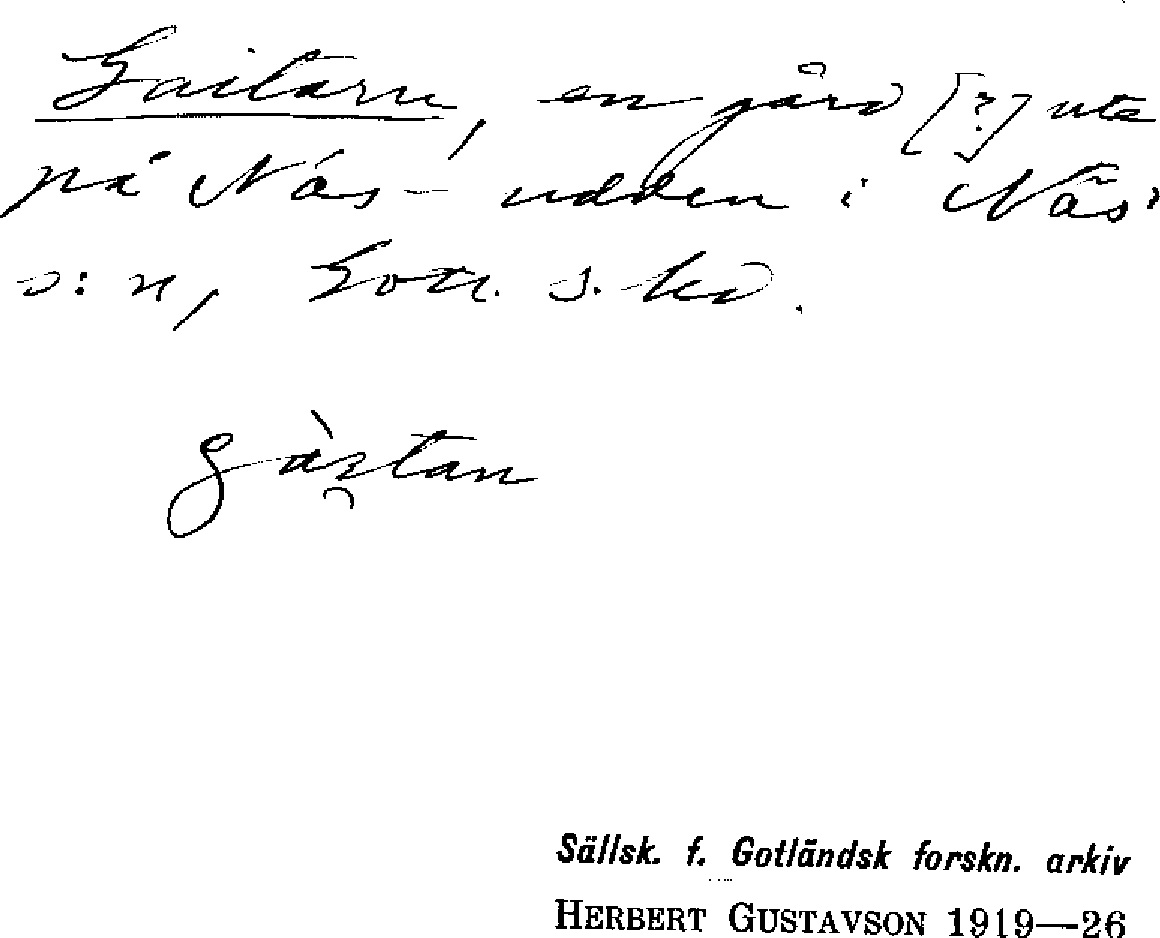 Gaitarn, en gård [?] ute
på Näs-udden i Näs
s:n, Gotl. s. hd.
gàıt̯an
Sällsk. f. Gotländsk forskn. arkiv
HERBERT GUSTAVSON 1919—26